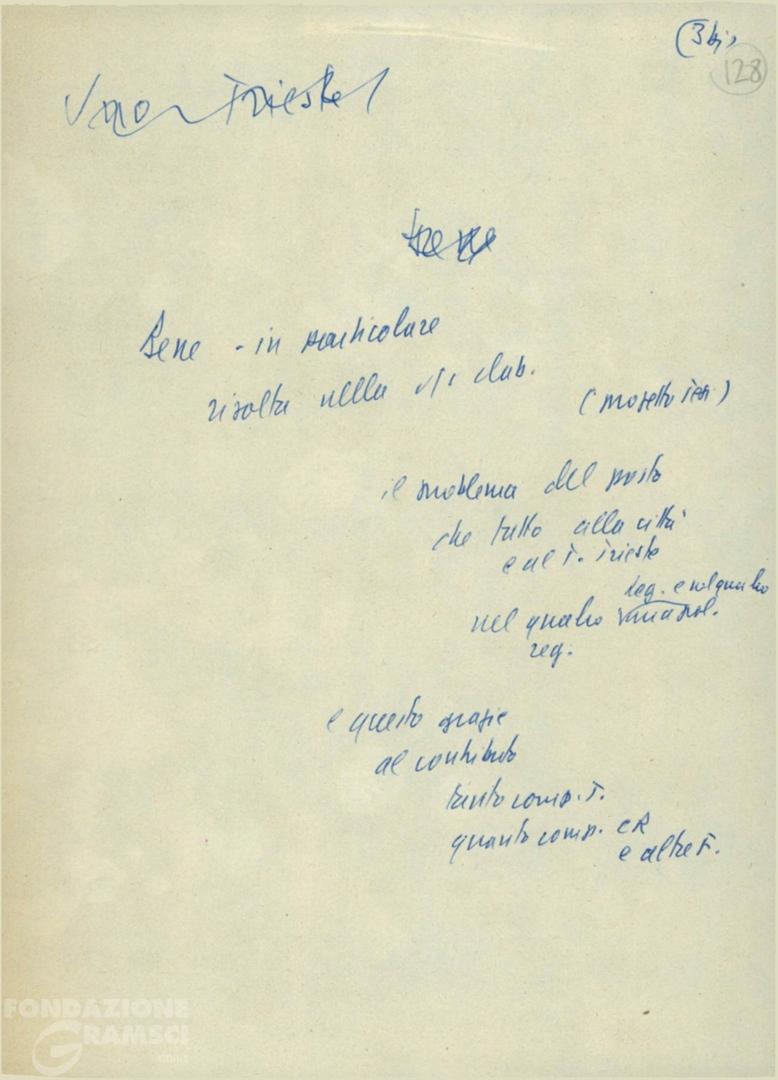 (3 bis
128
Uno Trieste
Bene - in particolare
risolta nella
(progetto tesi)
il problema del posto
che tutto alla città
e al T. Trieste
reg. e nel quadro
nel quadro
reg.
e questo grazie
al contributo
tanto comp. T.
quanto comp. CR
e altre F.
FONDAZIONE
GRAMSCI